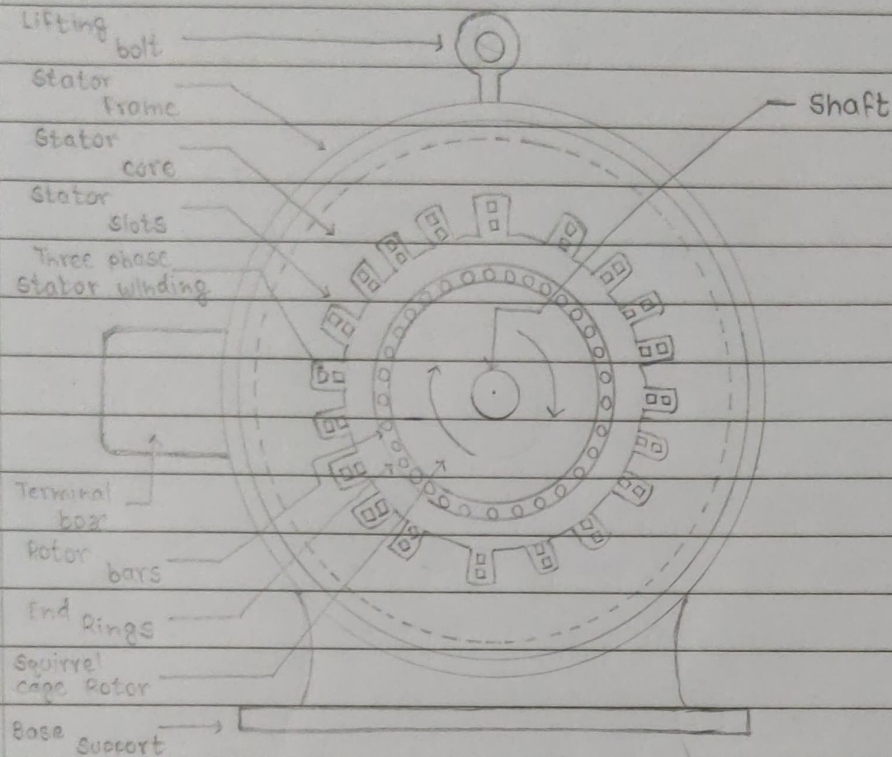 Lifting
bolt
Stator
frame
Shaft
Stator
core
Stator
slots
Three phase
Stator winding
Terminal
box
Rotor
bars
End
Rings
Squirrel
cage Rotor
Base
Support